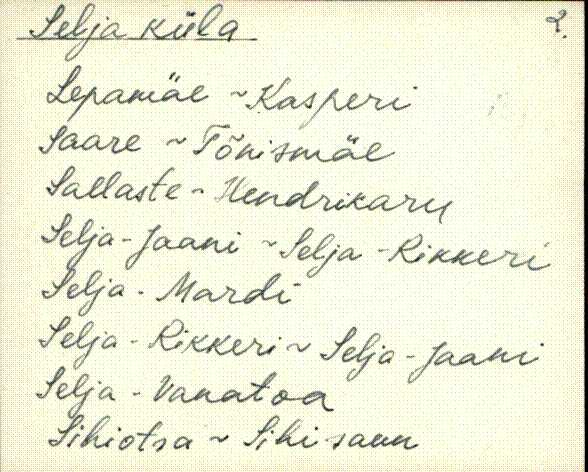 Selja küla 2.
Lepamäe ~ Kasperi
Saare ~ Tõnismäe
Sallaste ~ Hendrikaru
Selja-Jaani ~ Selja-Rikkeri
Selja-Mardi
Selja-Rikkeri ~ Selja-Jaani
Selja-Vanatoa
Sihiotsa ~ Sihisaun